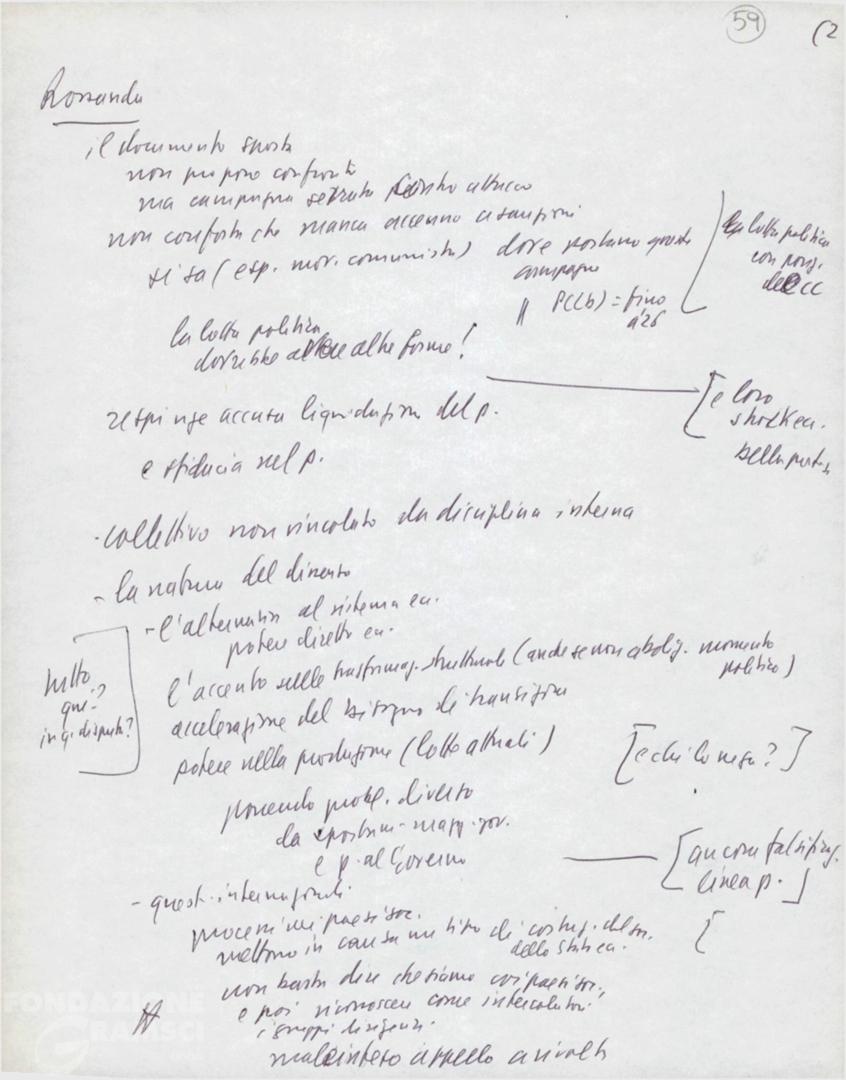 59
(2
Rossanda
il documento sposta
non propone confronto
ma campagna serrata contro attacco
non conforta che manca accenno a sanzioni
si sa (esp. mov. comunista) dove portano queste
campagne
" PC(b) = fino
a '26
la lotta politica
con
del CC
la lotta politica
dovrebbe avere altre forme!
[e loro
della
respinge accusa liquidazione del p.
e sfiducia nel p.
- collettivo non vincolato da disciplina interna
- la natura del dissenso
- l'alternativa al sistema ca.
potere diretto ca.
l'accento sulle trasformaz. strutturali (anche se non aboliz. momento
politico)
accelerazione del bisogno di transizione
potere nella produzione (lotte attuali)
tutto
qui?
in q. disputa?
[e chi lo nega?]
ponendo probl. diverso
da magg. gov.
e p. al Governo
[ancora falsificaz.
linea p.]
- quest. internazionali
processi nei paesi soc.
mettono in causa un tipo di costruz. del soc.
dello Stato
[
non basta dire che siamo coi paesi soc.,
e poi riconoscere come interlocutori
i gruppi dirigenti.
appello a rivolta
FONDAZIONE
GRAMSCI